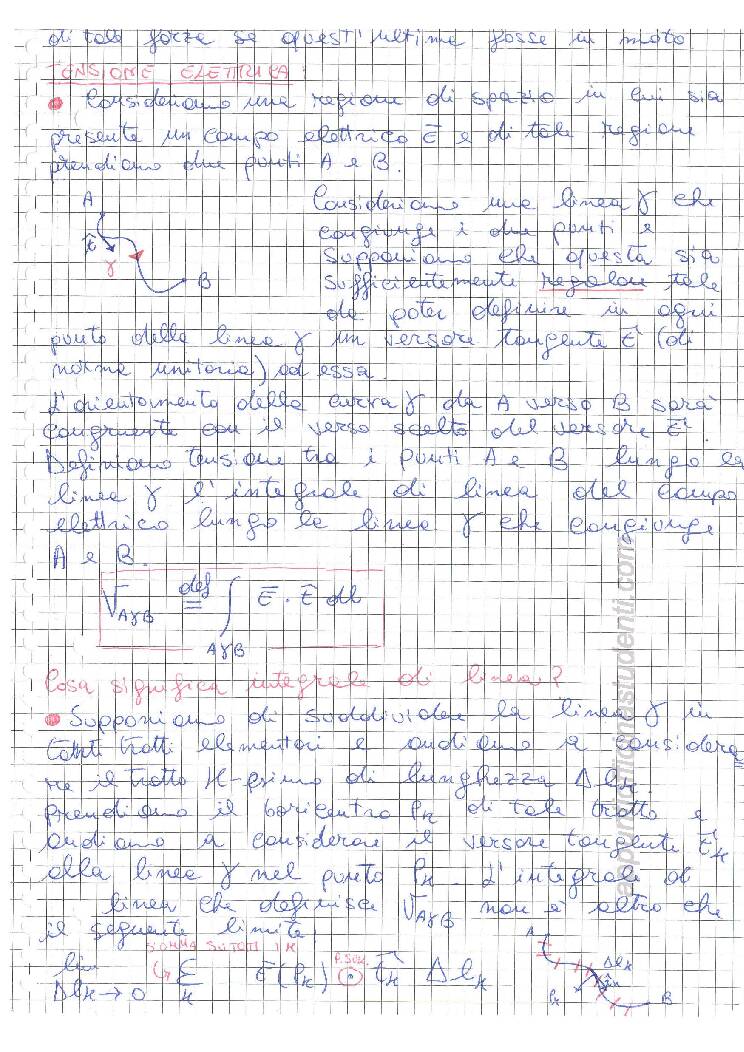 di tale forza se quest'ultima fosse in moto
TENSIONE ELETTRICA:
• Consideriamo una regione di spazio in cui sia
presente un campo elettrico E e di tale regione
prendiamo due punti A e B.
Consideriamo una linea γ che
congiunge i due punti e
supponiamo che questa sia
sufficientemente regolare tale
da poter definire in ogni
A
t
γ
B
punto della linea γ un versore tangente t (di
norma unitaria) ad essa.
L'orientamento della curva γ da A verso B sarà
congruente con il verso scelto del versore t.
Definiamo tensione tra i punti A e B lungo la
linea γ l'integrale di linea del campo
elettrico lungo la linea γ che congiunge
A e B.
V_AγB def= ∫_AγB E · t dl
Cosa significa integrale di linea?
• Supponiamo di suddividere la linea γ in
tanti tratti elementari e andiamo a considera
re il tratto K-esimo di lunghezza Δlk.
Prendiamo il baricentro Pk di tale tratto e
andiamo a considerare il versore tangente tk
alla linea γ nel punto Pk. L'integrale di
linea che definisce V_AγB non è altro che
il seguente limite:
SOMMA SU TUTTI I K
lim Δlk→0 Σ_k E(Pk) · tk Δlk
P. SCA.
A
Δlk
Pk
tk
B
appuntiingegneristudenti.com